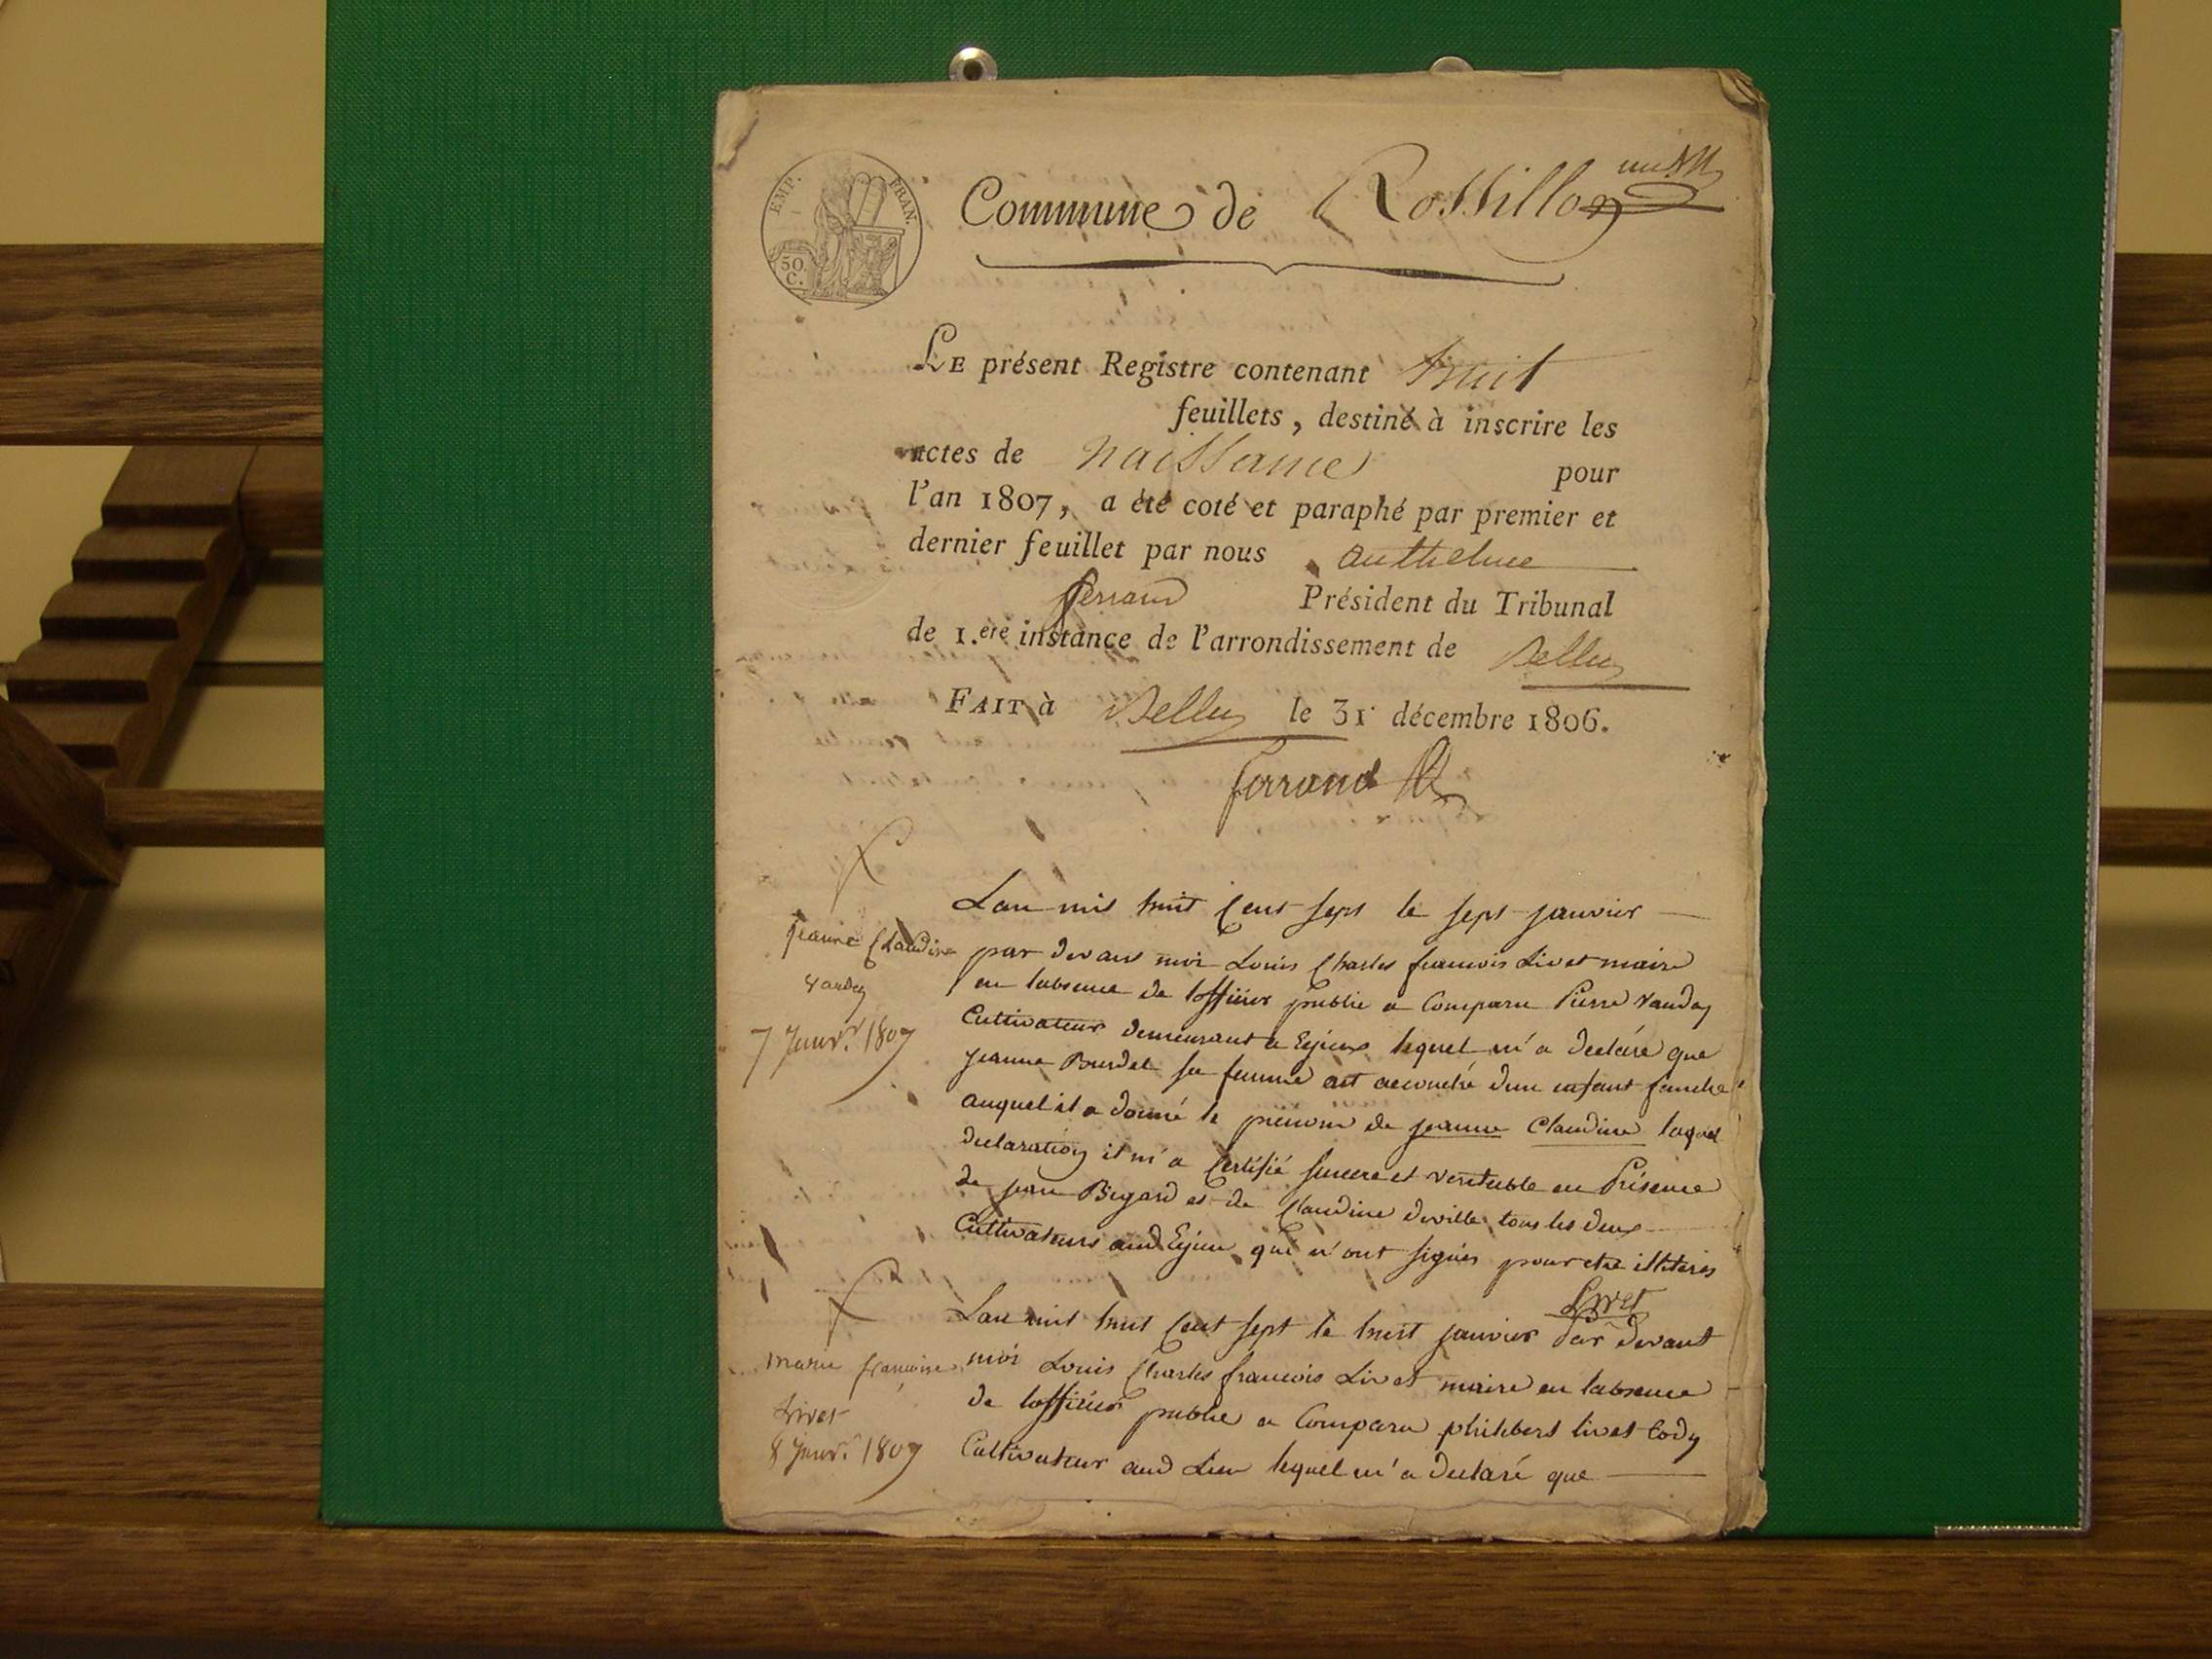 EMP. FRAN.
50 C.
Commune de Rossillon
LE présent Registre contenant huit
feuillets, destiné à inscrire les
actes de naissance pour
l'an 1807, a été coté et paraphé par premier et
dernier feuillet par nous anthelme
ferrand Président du Tribunal
de 1.ere instance de l'arrondissement de Belley
FAIT à Belley le 31 décembre 1806.
ferrand
Jeanne Claudine
Vauday
7 Janv.r 1807
Lan mil huit Cent sept le sept janvier
par devant moi Louis Charles francois Livet maire
en labsence de lofficier public a Comparu Pierre Vauday
Cultivateur demeurant a Egieux lequel m'a declaré que
jeanne Bourdel sa femme est acouché dun enfant femelle
auquel il a donné le prenom de jeanne Claudine laquel
declaration il m'a Certifié sincere et veritable en Présence
de jean Bigard et de Claudine deville tous les deux
Cultivateurs aud Egieu qui n'ont signés pour etre illiterés
Livet
marie francoise
Livet
8 Janv.r 1807
Lan mil huit Cent sept le huit janvier Par devant
moi Louis Charles francois Livet maire en labsence
de lofficier public a Comparu philibert livet Cody
Cultivateur aud Lieu lequel m'a declaré que